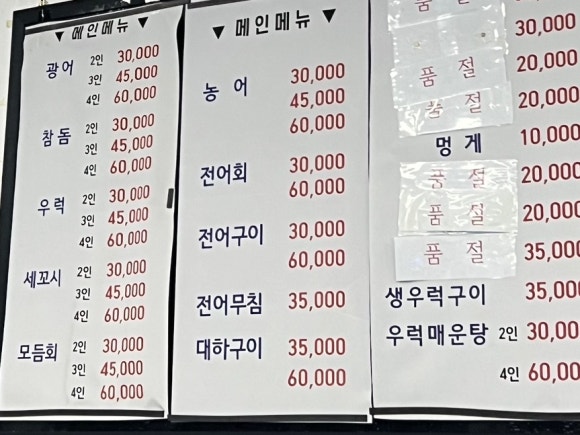 ▼ 메인메뉴 ▼
광어 2인 30,000
3인 45,000
4인 60,000
참돔 2인 30,000
3인 45,000
4인 60,000
우럭 2인 30,000
3인 45,000
4인 60,000
세꼬시 2인 30,000
3인 45,000
4인 60,000
모듬회 2인 30,000
3인 45,000
4인 60,000
▼ 메인메뉴 ▼
농어 30,000
45,000
60,000
전어회 30,000
60,000
전어구이 30,000
60,000
전어무침 35,000
대하구이 35,000
60,000
품절
30,000
품절 20,000
품절 20,000
멍게 10,000
품절 20,000
품절 20,000
품절 35,000
생우럭구이 35,000
우럭매운탕 2인 30,000
4인 60,000